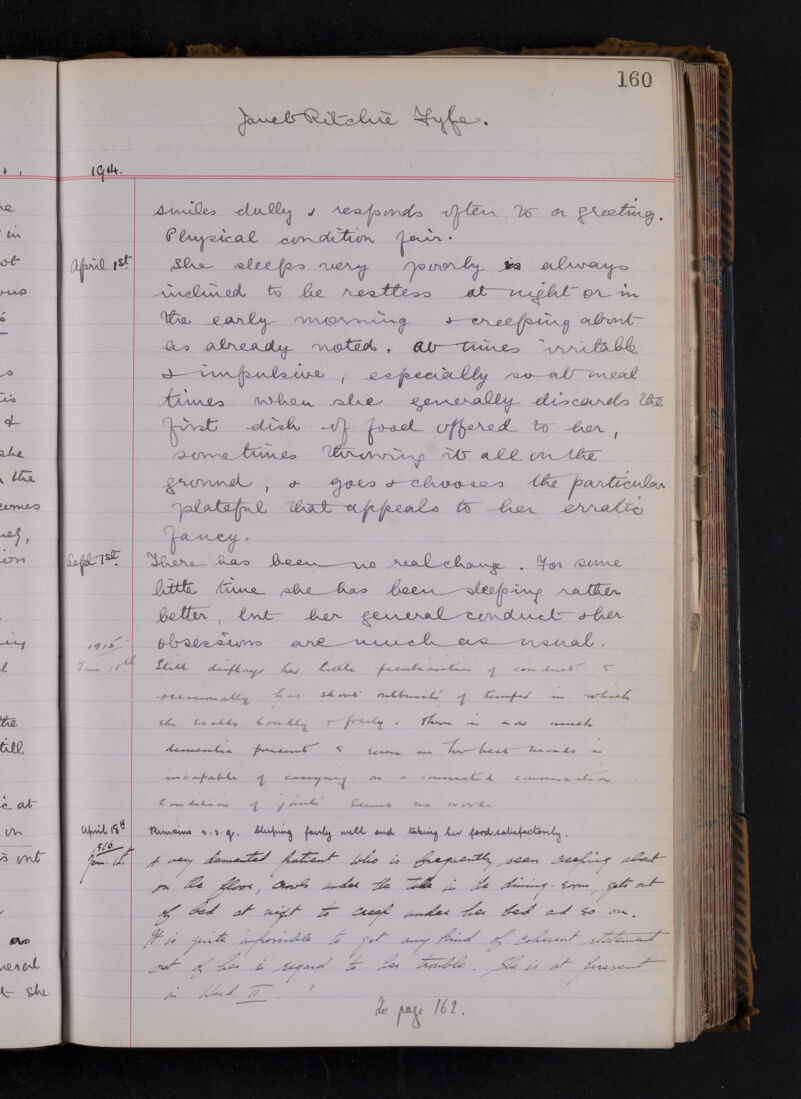 160
Janet Ritchie Fyfe.
1914.
smiles dully & responds often to a greeting.
Physical condition fair.
April 1st She sleeps very poorly is always
inclined to be restless at night or in
the early morning & creeping about
as already noted. At times irritable
& impulsive, especially so at meal
times when she generally discards the
first dish of food offered to her,
sometimes throwing it all on the
ground, & goes & chooses the particular
plateful that appeals to her erratic
fancy.
Sept 1st. There has been no real change. For some
little time she has been sleeping rather
better, but her general conduct & her
obsessions are much as usual.
1915
Jan 18th Still displays her little peculiarities of conduct &
occasionally has short outbursts of temper in which
she scolds loudly & freely. There is now much
dementia present & even in her best moods is
incapable of carrying on a connected conversation
Condition of joints seems no worse
April 18th Remains i.s.q. sleeping fairly well and taking her food satisfactorily.
1916
Jan. 12t A very demented patient who is frequently seen creeping about
on the floor, crawls under the table in the dining-room, gets out
of bed at night to creep under her bed and so on.
It is quite impossible to get any kind of coherent statement
out of her in regard to her trouble. She is at present
in Ward II.
To page 162.
ne
in
ot
ous
is
&
she
the
comes
ion
the
till
c at
on
ont
as
neral
t she